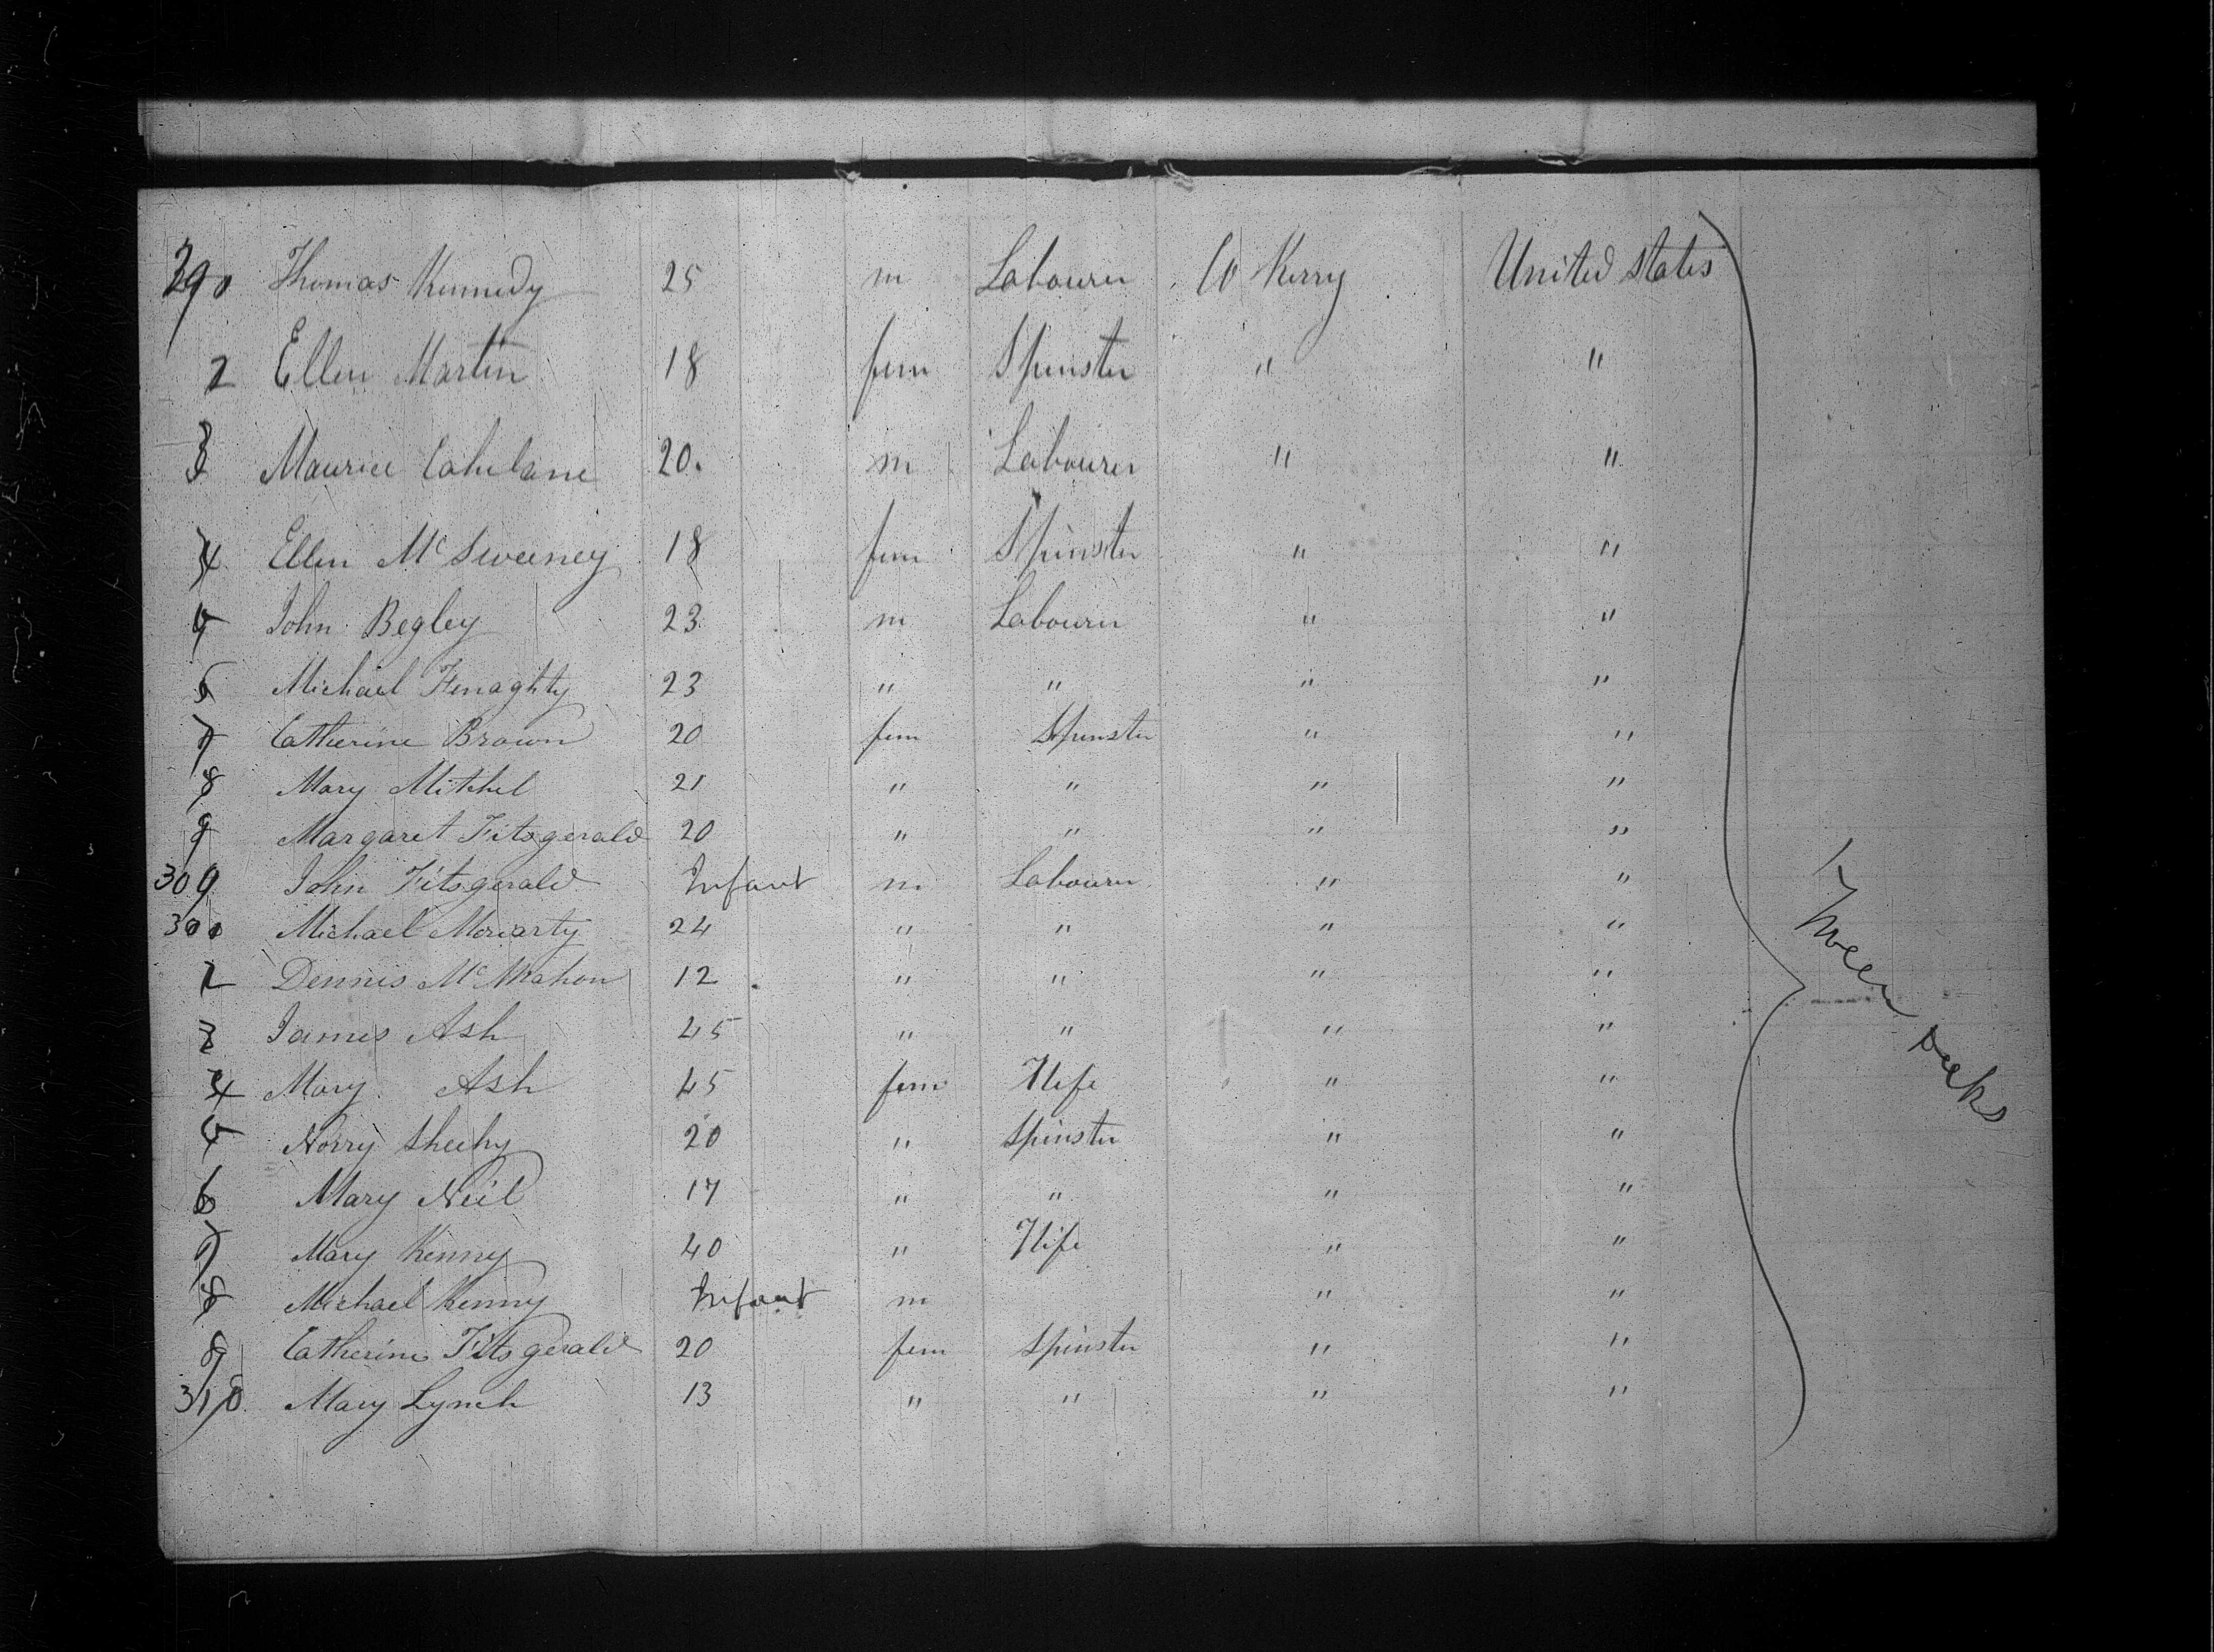 290 Thomas Kennedy 25 m Labourer Co Kerry United States
2 Ellen Martin 18 fem Spinster " "
3 Maurice Cahilane 20. m Labourer " "
4 Ellen McSweeney 18 fem Spinster " "
5 John Begley 23 m Labourer " "
6 Michael Finaghty 23 " " " "
7 Catherine Brown 20 fem Spinster " "
8 Mary Mitchel 21 " " " "
9 Margaret Fitzgerald 20 " " " "
300 John Fitzgerald Infant m Labourer " "
Michael Moriarty 24 " " " "
2 Dennis McMahon 12 " " " "
3 James Ash 45 " " " "
4 Mary Ash 45 fem Wife " "
5 Norry Sheehy 20 " Spinster " "
6 Mary Neil 17 " " " "
7 Mary Kenny 40 " Wife " "
8 Michael Kenny Infant m " "
9 Catherine Fitzgerald 20 fem Spinster " "
310 Mary Lynch 13 " " " "
Tween Decks